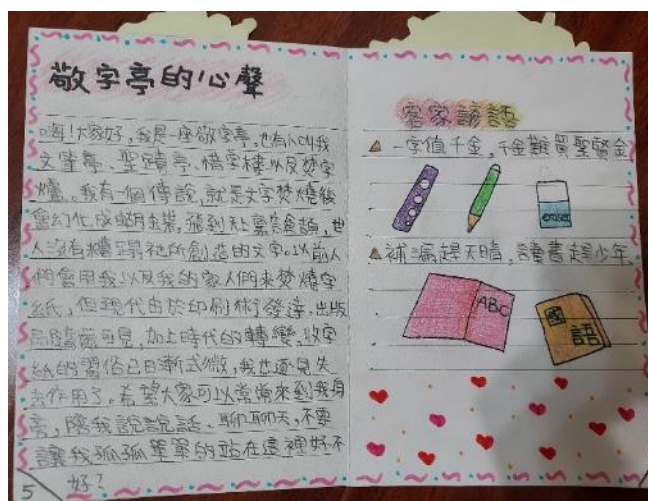 敬字亭的心聲
嗨！大家好，我是一座敬字亭，也有人叫我
文筆亭、聖蹟亭、惜字樓以及焚字
爐。我有一個傳說，就是文字焚燒後
會幻化成蝴蝶，飛到天上稟告倉頡，世
人沒有糟蹋祂所創造的文字。以前人
們會用我以及我的家人們來焚燒字
紙，但現代由於印刷術發達，出版
品隨處可見，加上時代的轉變，收字
紙的習俗已日漸式微，我也逐見失
去作用了。希望大家可以常常來到我身
旁，陪我說說話、聊聊天，不要
讓我孤孤單單的站在這裡好不
好？
5
客家諺語
一字值千金，千金難買聖賢金
補漏趕天晴，讀書趕少年
ABC
國語